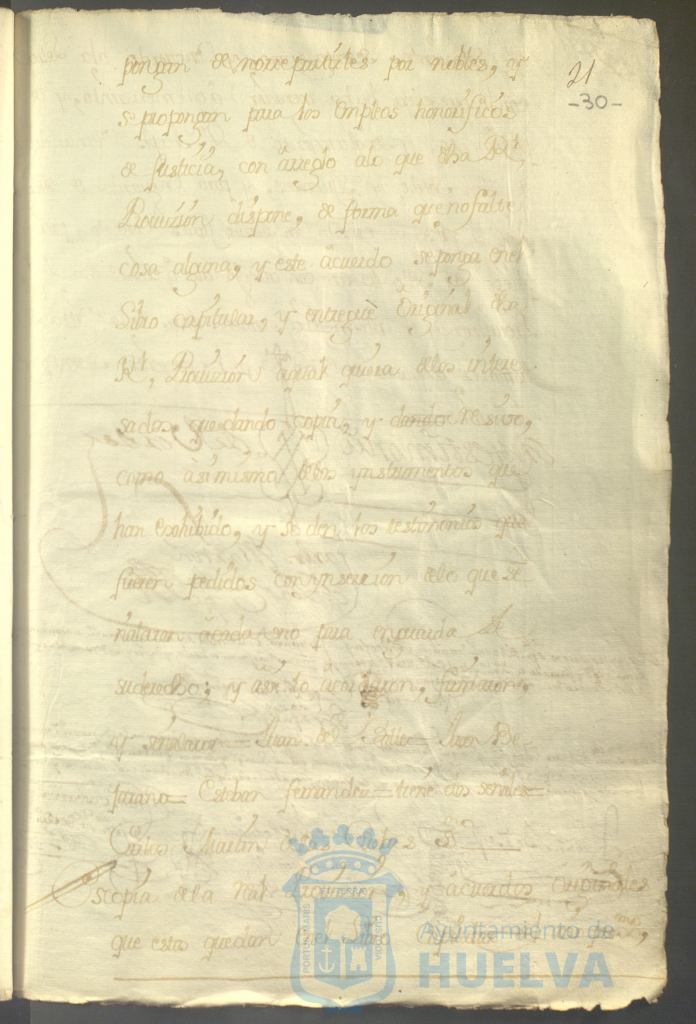 pongan de notre putates por nobles, y
21
-30-
se propongan para los Empleos honorificos
de Justicia, con arreglo alo que dha Rl.
Provizion dispone, de forma que no falte
cosa alguna, y este acuerdo se ponga en el
Libro capitular, y entregue Original dha
Rl. Provizion aqual quiera delos intere
sados, quedando copia, y dando resivo,
como asimismo delos ynstrumentos que
han exohibido, y se den los testimonios que
fueren pedidos con ynsercion delo que se
ñalaren acada uno para enguarda de
su derecho; y asi lo acordaron, firmaron,
y señalaron = Juan del Valle = Juan Be
jarano = Esteban fernandez = tiene dos señales =
Martin
Es copia de la Real Provizion, y acuerdos Originales
que estos quedan Libro Capitular
PORTUS MARIS
ET TERRÆ
CUSTODIA
Ayuntamiento de
HUELVA